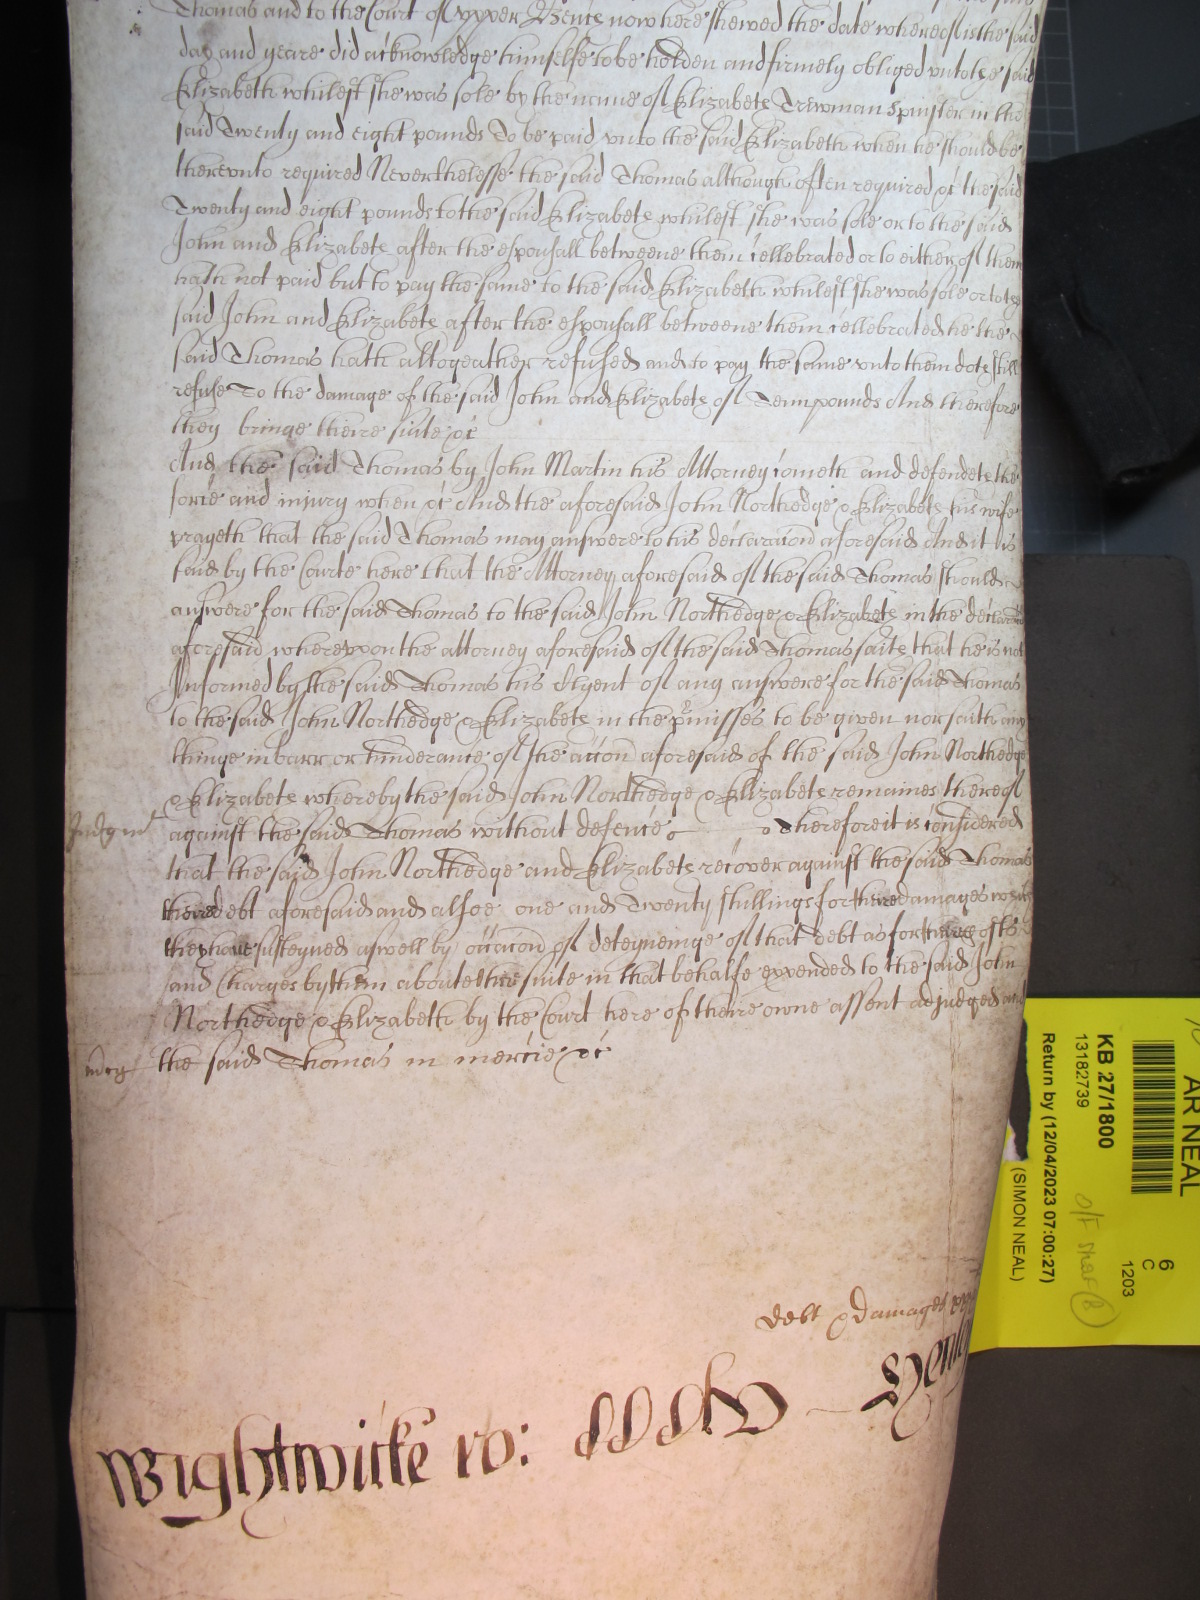 Thomas and to the Court of upper Bench now here shewed the date whereof is the said
day and yeare did acknowledge himselfe to be holden and firmely obliged unto the said
Elizabeth whilest she was sole by the name of Elizabeth Trewman Spinster in the
said Twenty and eight pounds To be paid unto the said Elizabeth when he should be
thereunto required Neverthelesse the said Thomas although often required &c the said
Twenty and eight pounds to the said Elizabeth whilest she was sole or to the said
John and Elizabeth after the espousall betweene them cellebrated or to either of them
hath not paid but to pay the same to the said Elizabeth whilest she was sole or to the
said John and Elizabeth after the espousall betweene them cellebrated he the
said Thomas hath altogeather refused and to pay the same unto them doth still
refuse To the damage of the said John and Elizabeth of Tenn pounds And therefore
they bringe theire suite &c
And the said Thomas by John Martin his Attorney cometh and defendeth the
force and injury when &c And the aforesaid John Northedge & Elizabeth his wife
prayeth that the said Thomas may answere to his declaracon aforesaid And it is
said by the Courte here that the Attorney aforesaid of the said Thomas should
answere for the said Thomas to the said John Northedge & Elizabeth in the declaracon
aforesaid whereupon the attorney aforesaid of the said Thomas saith that he is not
Informed by the said Thomas his Clyent of any answere for the said Thomas
to the said John Northedge & Elizabeth in the pmisses to be given nor saith any
thinge in barr or hinderance of the accon aforesaid of the said John Northedge
& Elizabeth whereby the said John Northedge & Elizabeth remaines thereof
Judgmt against the said Thomas without defence Therefore it is considered
that the said John Northedge and Elizabeth recover against the said Thomas
theire debt aforesaid and alsoe one and Twenty shillings for theire damages which
they have susteyned aswell by occacon of deteyneinge of that debt as for theire costs
and Charges by them about theire suite in that behalfe expended to the said John
Northedge & Elizabeth by the Court here of theire owne assent adjudged and
mcy the said Thomas in mercie &c
Debt & damages
Wightwicke ro: Henley
AR NEAL
KB 27/1800
13182739
Return by (12/04/2023 07:00:27)
(SIMON NEAL)
6
C
1203